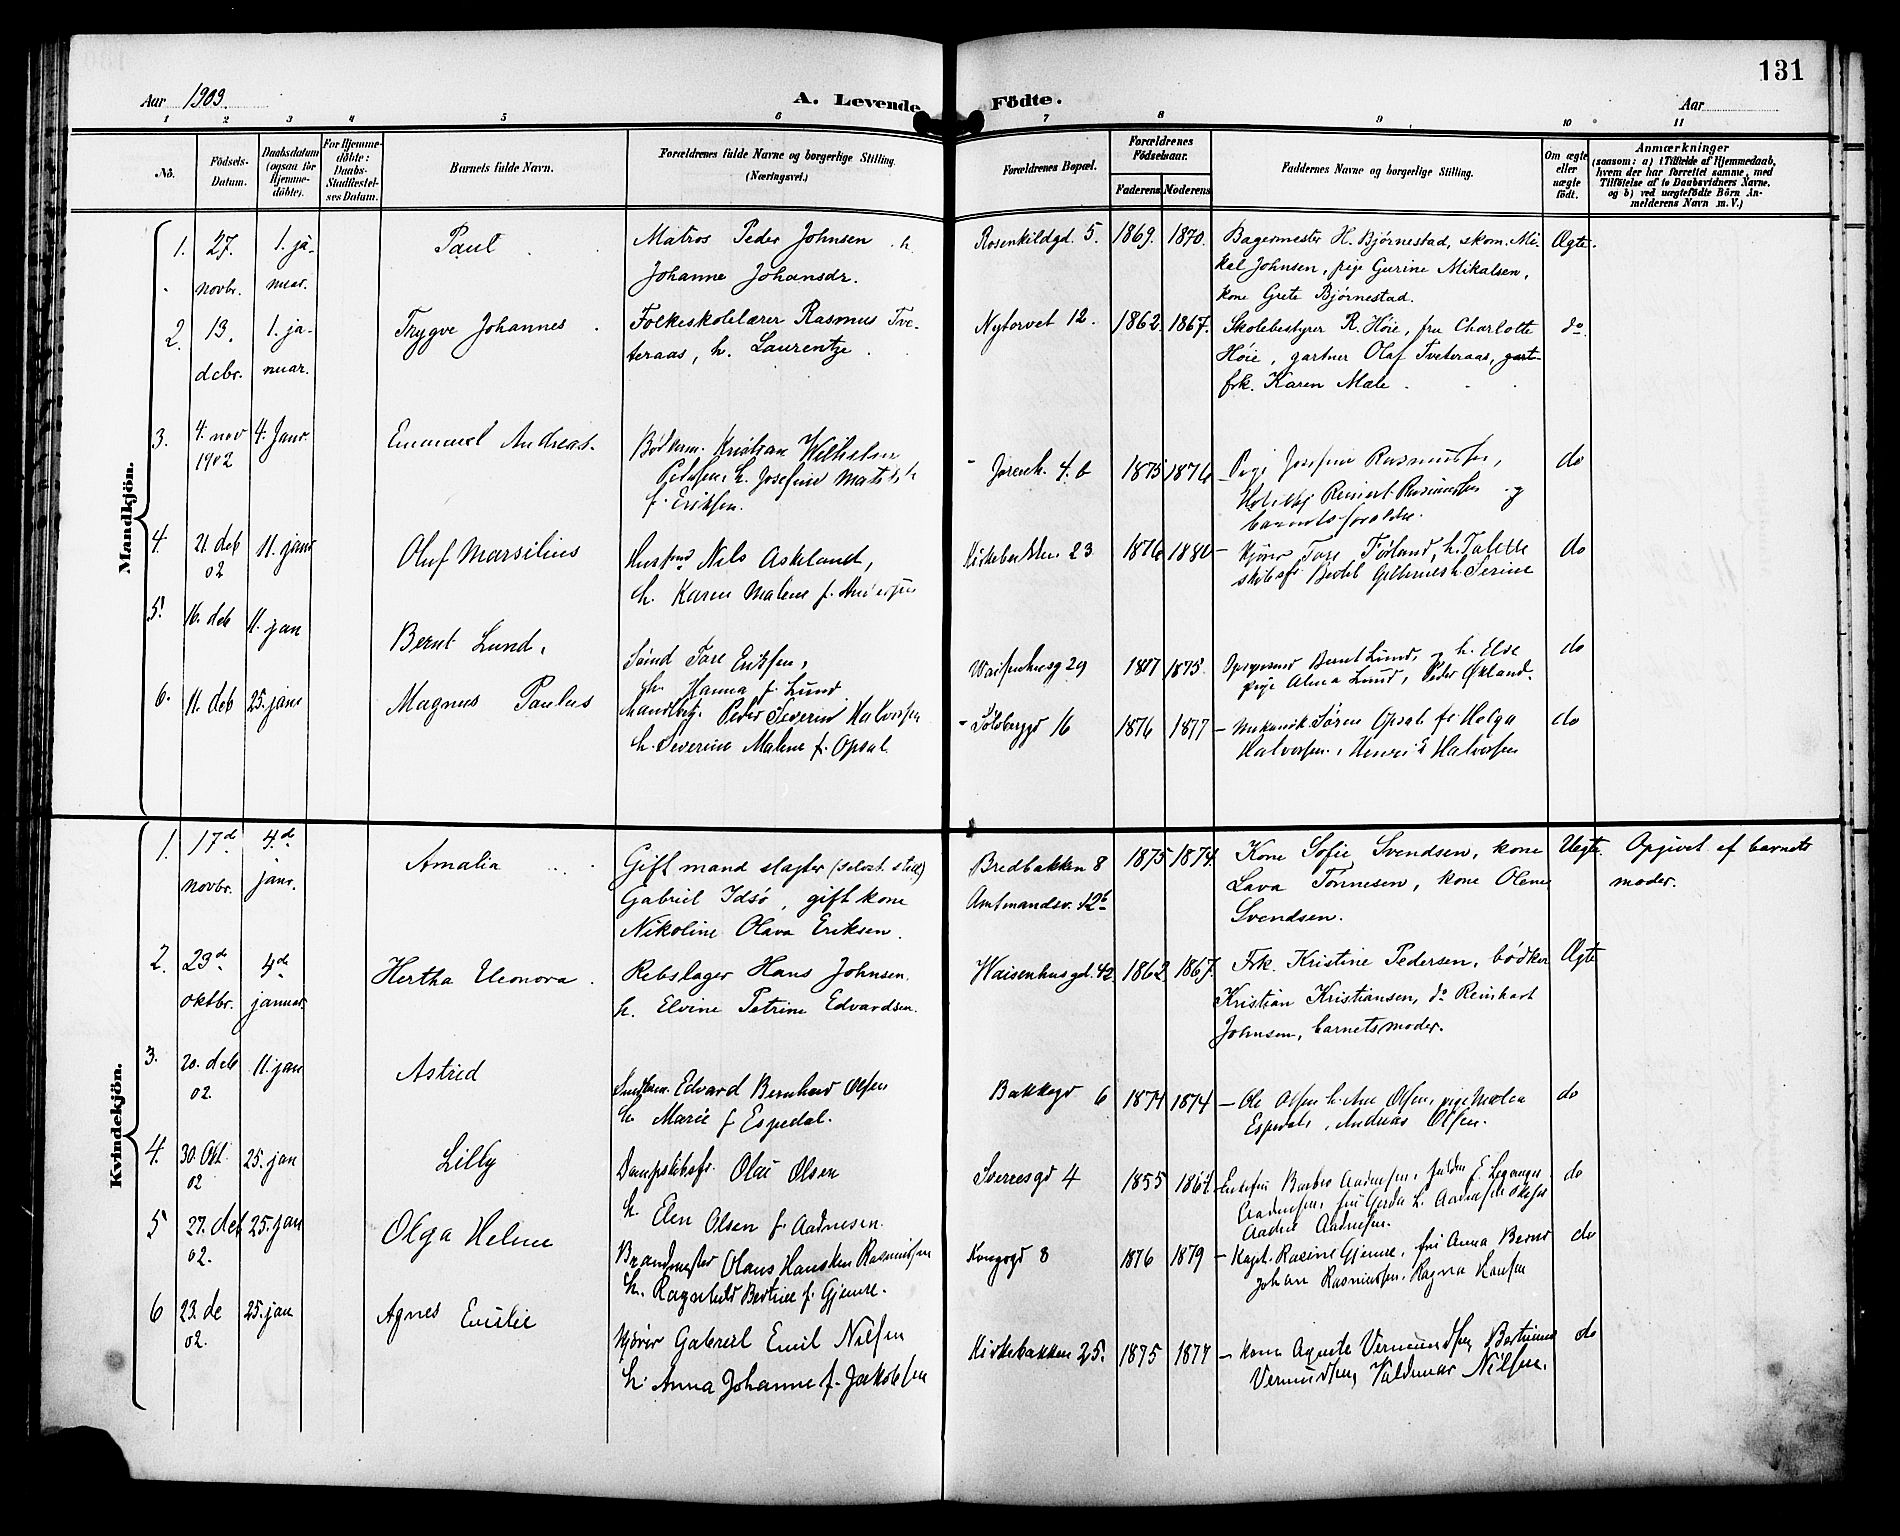 131
Aar 1903.
A. Levende Födte.
Aar
1 2 3 4 5 6 7 8 9 10 11
No.
Födsels-
Datum.
Daabsdatum
(ogsaa for
Hjemme-
döbte).
For Hjemme-
döbte:
Daabs-
Stadfæstel-
ses Datum.
Barnets fulde Navn.
Forældrenes fulde Navne og borgerlige Stilling.
(Næringsvei.)
Forældrenes Bopæl.
Forældrenes
Födselsaar.
Faderens Moderens
Faddernes Navne og borgerlige Stilling.
Om ægte
eller
uægte
födt.
Anmærkninger
(saasom: a) i Tilfælde af Hjemmedaab,
hvem der har forrettet samme, med
Tilföielse af to Daabsvidners Navne,
og b) ved uægtefödte Börn An-
melderens Navn m. V.)
Mandkjön.
1. 27. novbr. 1. ja-
nuar.
Paul
Matros Peder Johnsen h.
Johanne Johansdr.
Rosenkildgd. 5. 1869. 1870.
Bagermester H. Bjørnestad, skom. Mi-
kal Johnsen, pige Gurine Mikalsen,
kone Grete Bjørnestad.
Ægte.
2. 13. debr. 1. ja-
nuar.
Trygve Johannes
Folkeskolelærer Rasmus Tve-
teraas, h. Laurentze
Nytorvet 12. 1862 1867.
Skolebestyrer R. Høie, fru Charlotte
Høie, gartner Olaf Tveteraas,
frk. Karen Male
do.
3. 4. nov 1902 4. Janr.
Emanuel Andreas
Bødkerm. Kristian Wilhelm
Petersen, h. Josefine
f. Eriksen.
4. b 1875 1876
Pige Josefine Rasmussen,
Reinert Rasmussen og
barnets forældre.
do
4. 21. deb 02 11. janr
Oluf Marsilius
Nils Askeland,
h. Karen Malene f.
23 1876 1880
Kjører Tore Førland, h. Talette
h. Serine
do
5. 16. deb 11. jan
Bernt Lund,
Tore Eriksen,
h. Hanna f. Lund
Waisenhusg 29 1875.
Bernt Lund, og h. Else
pige Alma Lund, Peder Økland.
do
6. 11. deb 25. janr
Magnus Paulus
Peder Severin Halvorsen
h. Severine Malene f. Opsal
16 1876 1877
Mekanik. Søren Opsal, fr Helga
Halvorsen, Henrik Halvorsen
do
Kvindekjön.
1. 17de novbr. 4de janr.
Amalia
Gift mand slagter
Gabriel Idsö, gift kone
Nikoline Olava Eriksen.
Bredbakken 8
Amtmandsv. 42b
1875 1874.
Kone Sofie Svendsen, kone
Lava Tønnesen, kone Olene
Svendsen.
Uægte.
Opgivet af barnets
moder.
2. 23de oktbr. 4de januar.
Hertha Eleonora
Rebslager Hans Johnsen.
h. Elvine Petrine Edvardsen.
Waisenhusgd. 42. 1862. 1867.
Frk. Kristine Pedersen, bødker
Kristian Kristiansen, do Reinhart
Johnsen, barnets moder.
Ægte
3. 20. deb 02. 11. jan
Astrid
Edvard Bernhard Olsen
h. Marie f Espedal.
Bakkegd 6 1874 1874
Ole Olsen h. Ane Olsen, pige Malen
Espedal, Andreas Olsen.
do
4. 30. Okt 02 25. jan
Lilly
Dampskibsf. Olai Olsen
h. Elen Olsen f. Aadnesen.
Sverresgd 4 1855
Aadnesen, fru Gerda L. Aadnesen
Aadne Aadnesen.
do
5 27. deb 02. 25. jan
Olga Helene
Brandmester Olaus Hansken Rasmussen
h. Ragnhild Bertine f. Gjemre.
Kongsgd 8 1876 1879
Kapt. Rasine Gjemre, fru Anna Berner
Johan Rasmussen, Ragna Hansen
do
6 23. de 02. 25. jan
Agnes Emilie
Kjører Gabriel Emil Nilsen
h. Anna Johanne f. Jakobsen
Kirkebakken 25. 1875 1877
kone Agnete Vermundsen,
Vermundsen, Valdemar Nilsen.
do